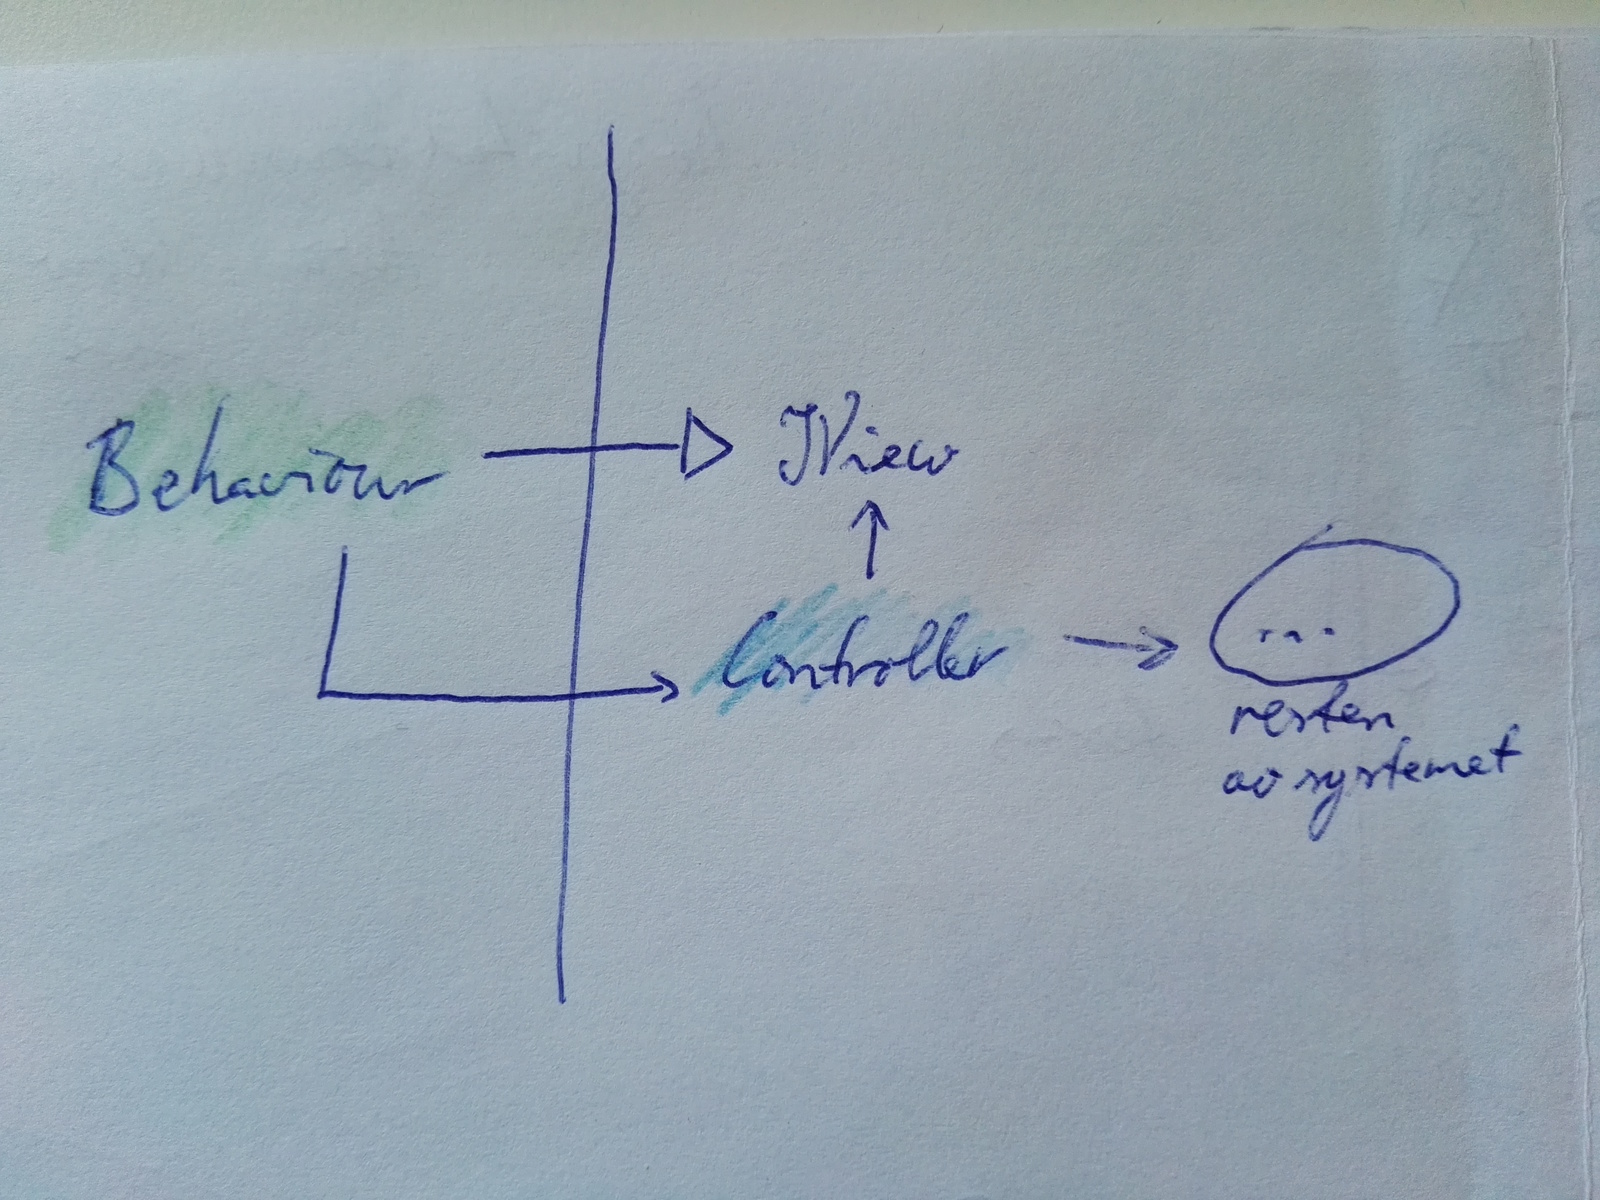 Behaviour
IView
Controller
...
resten
av systemet